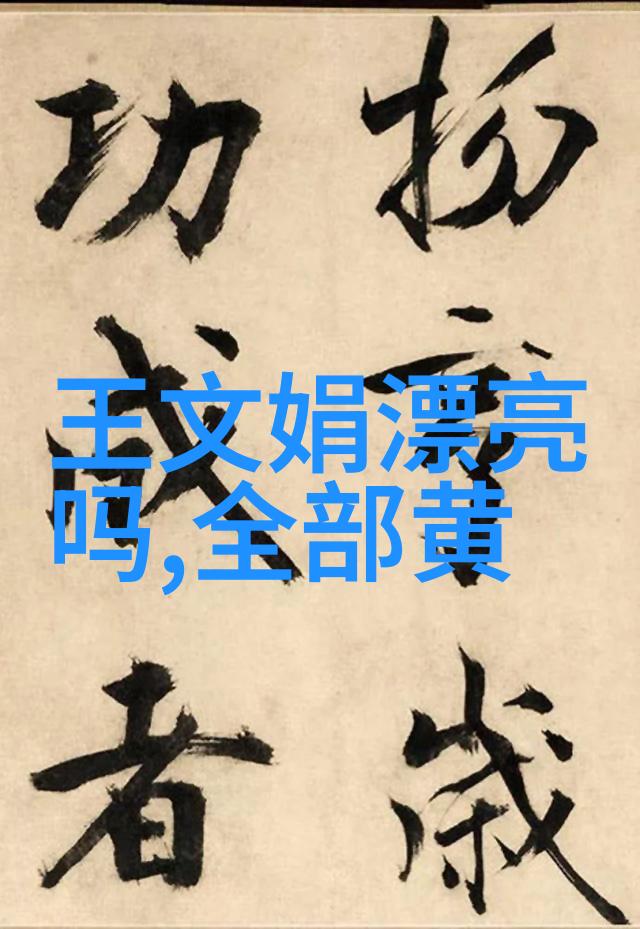 王文娟漂亮
吗,全部黄
歲
功成者